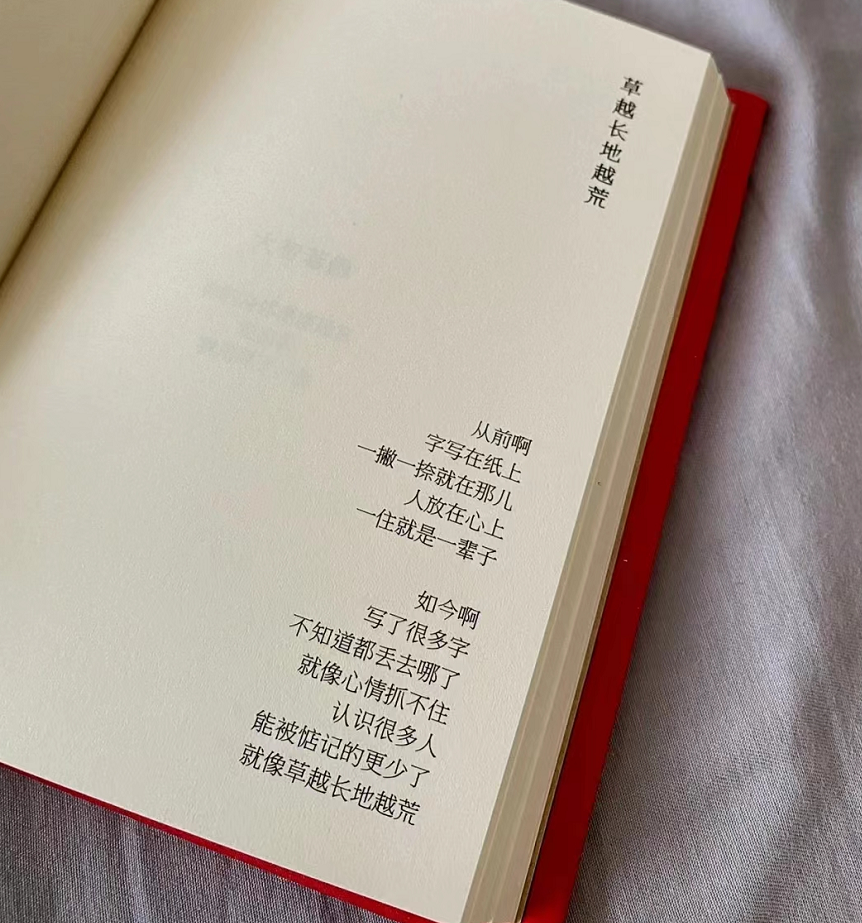 草越长地越荒
从前啊
字写在纸上
一撇一捺就在那儿
人放在心上
一住就是一辈子
如今啊
写了很多字
不知道都丢去哪了
就像心情抓不住
认识很多人
能被惦记的更少了
就像草越长地越荒